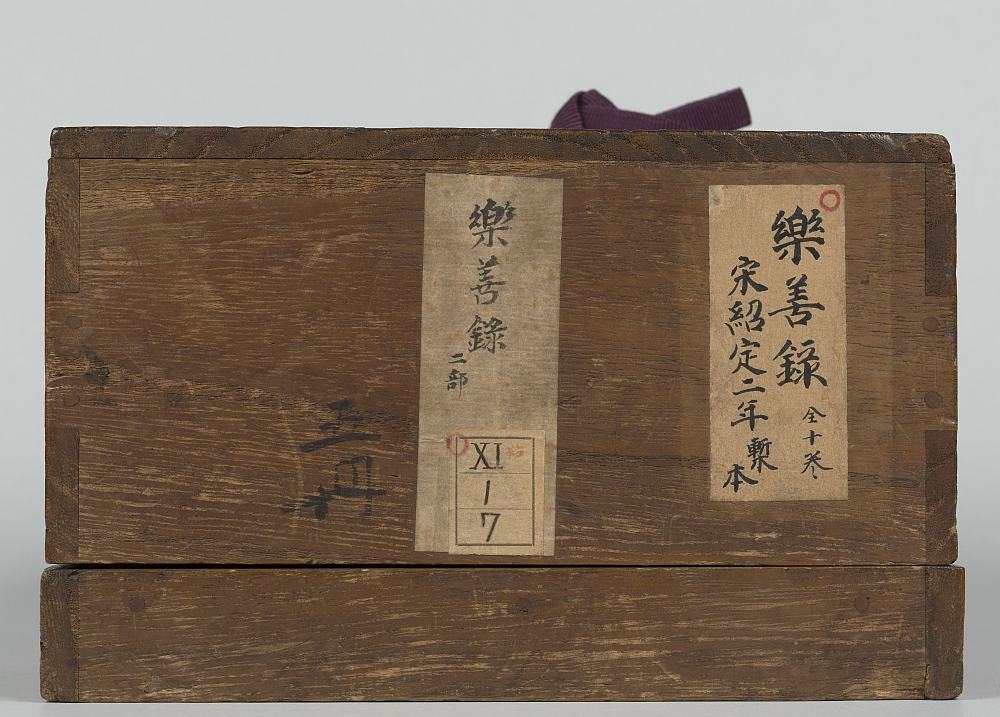 樂善錄 全十卷
宋紹定二年槧本
樂善錄
二部
XI
1
7
五冊